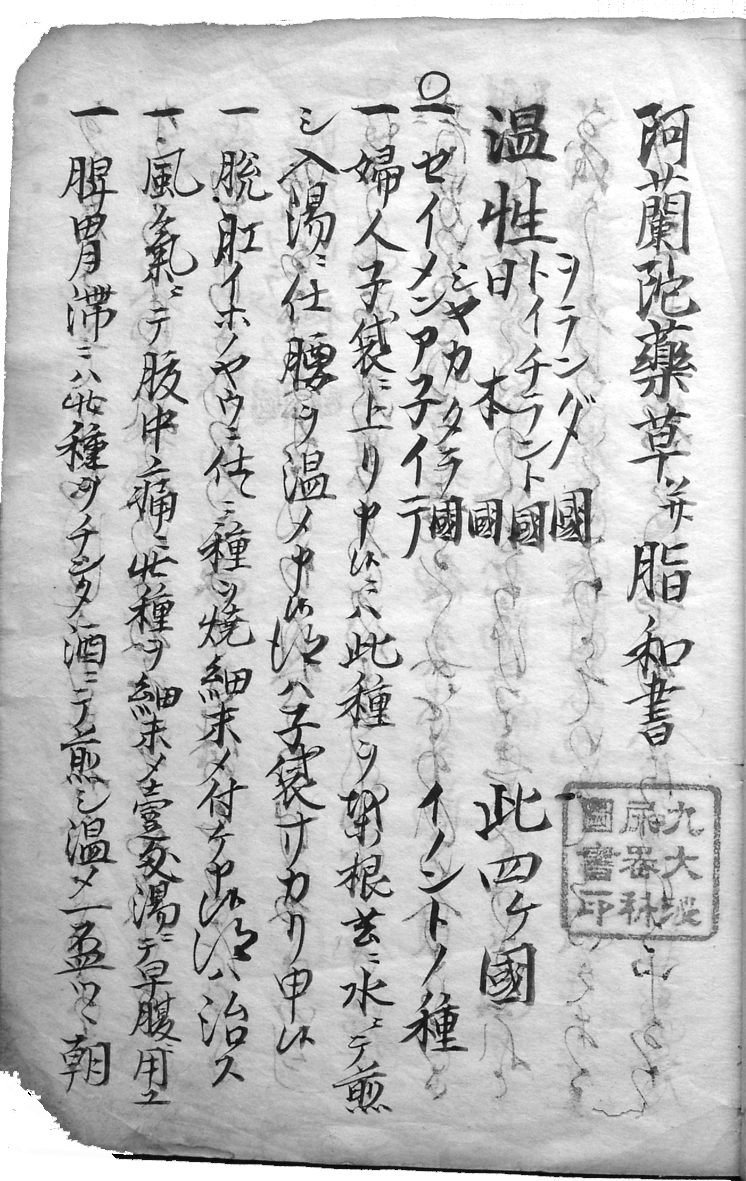 阿蘭陀藥草并脂和書
温性
ヲランダ國
トイチラント國
日本國
シヤカタラ國
此四ケ國
一ゼイメンアネイテ イノントノ種
一婦人子袋ニ上リ申候ニハ此種ヲ 根共ニ水ニテ煎
シ入湯ニ仕腰ヲ温メ申候得ハ子袋サカリ申候
一脱肛イホノヤウニ仕ニ種ヲ焼細末メ付ケ申候得ハ治ス
一風氣ニテ腹中ノ痛ニ此種ヲ細末メ 湯ニテ早腹用ユ
一脾胃滞ニハ此種ヲチンタ酒ニテ煎シ温メ一盃ツヽ朝
九大
圖書印